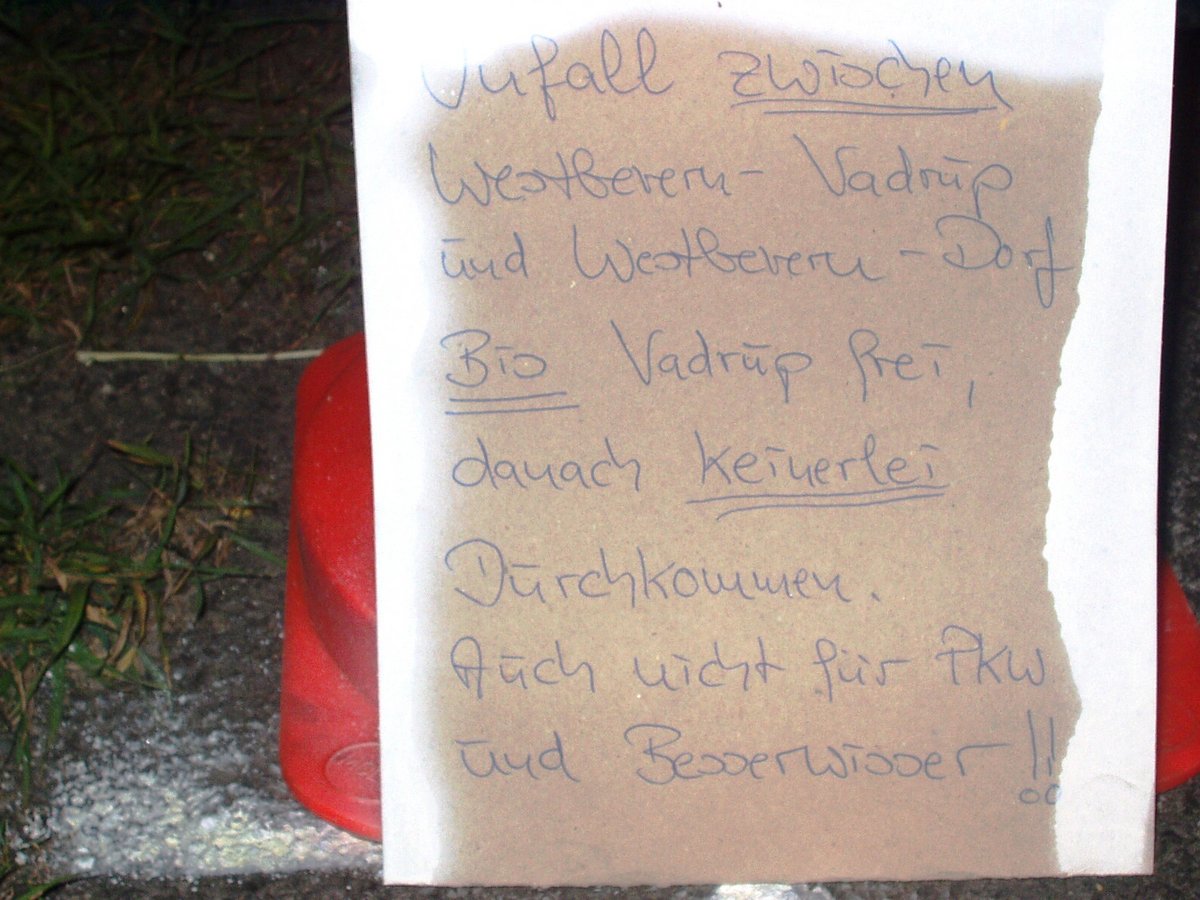 Unfall zwischen
Westbevern-Vadrup
und Westbevern-Dorf
Bis Vadrup frei,
danach keinerlei
Durchkommen.
Auch nicht für PKW
und Besserwisser!!